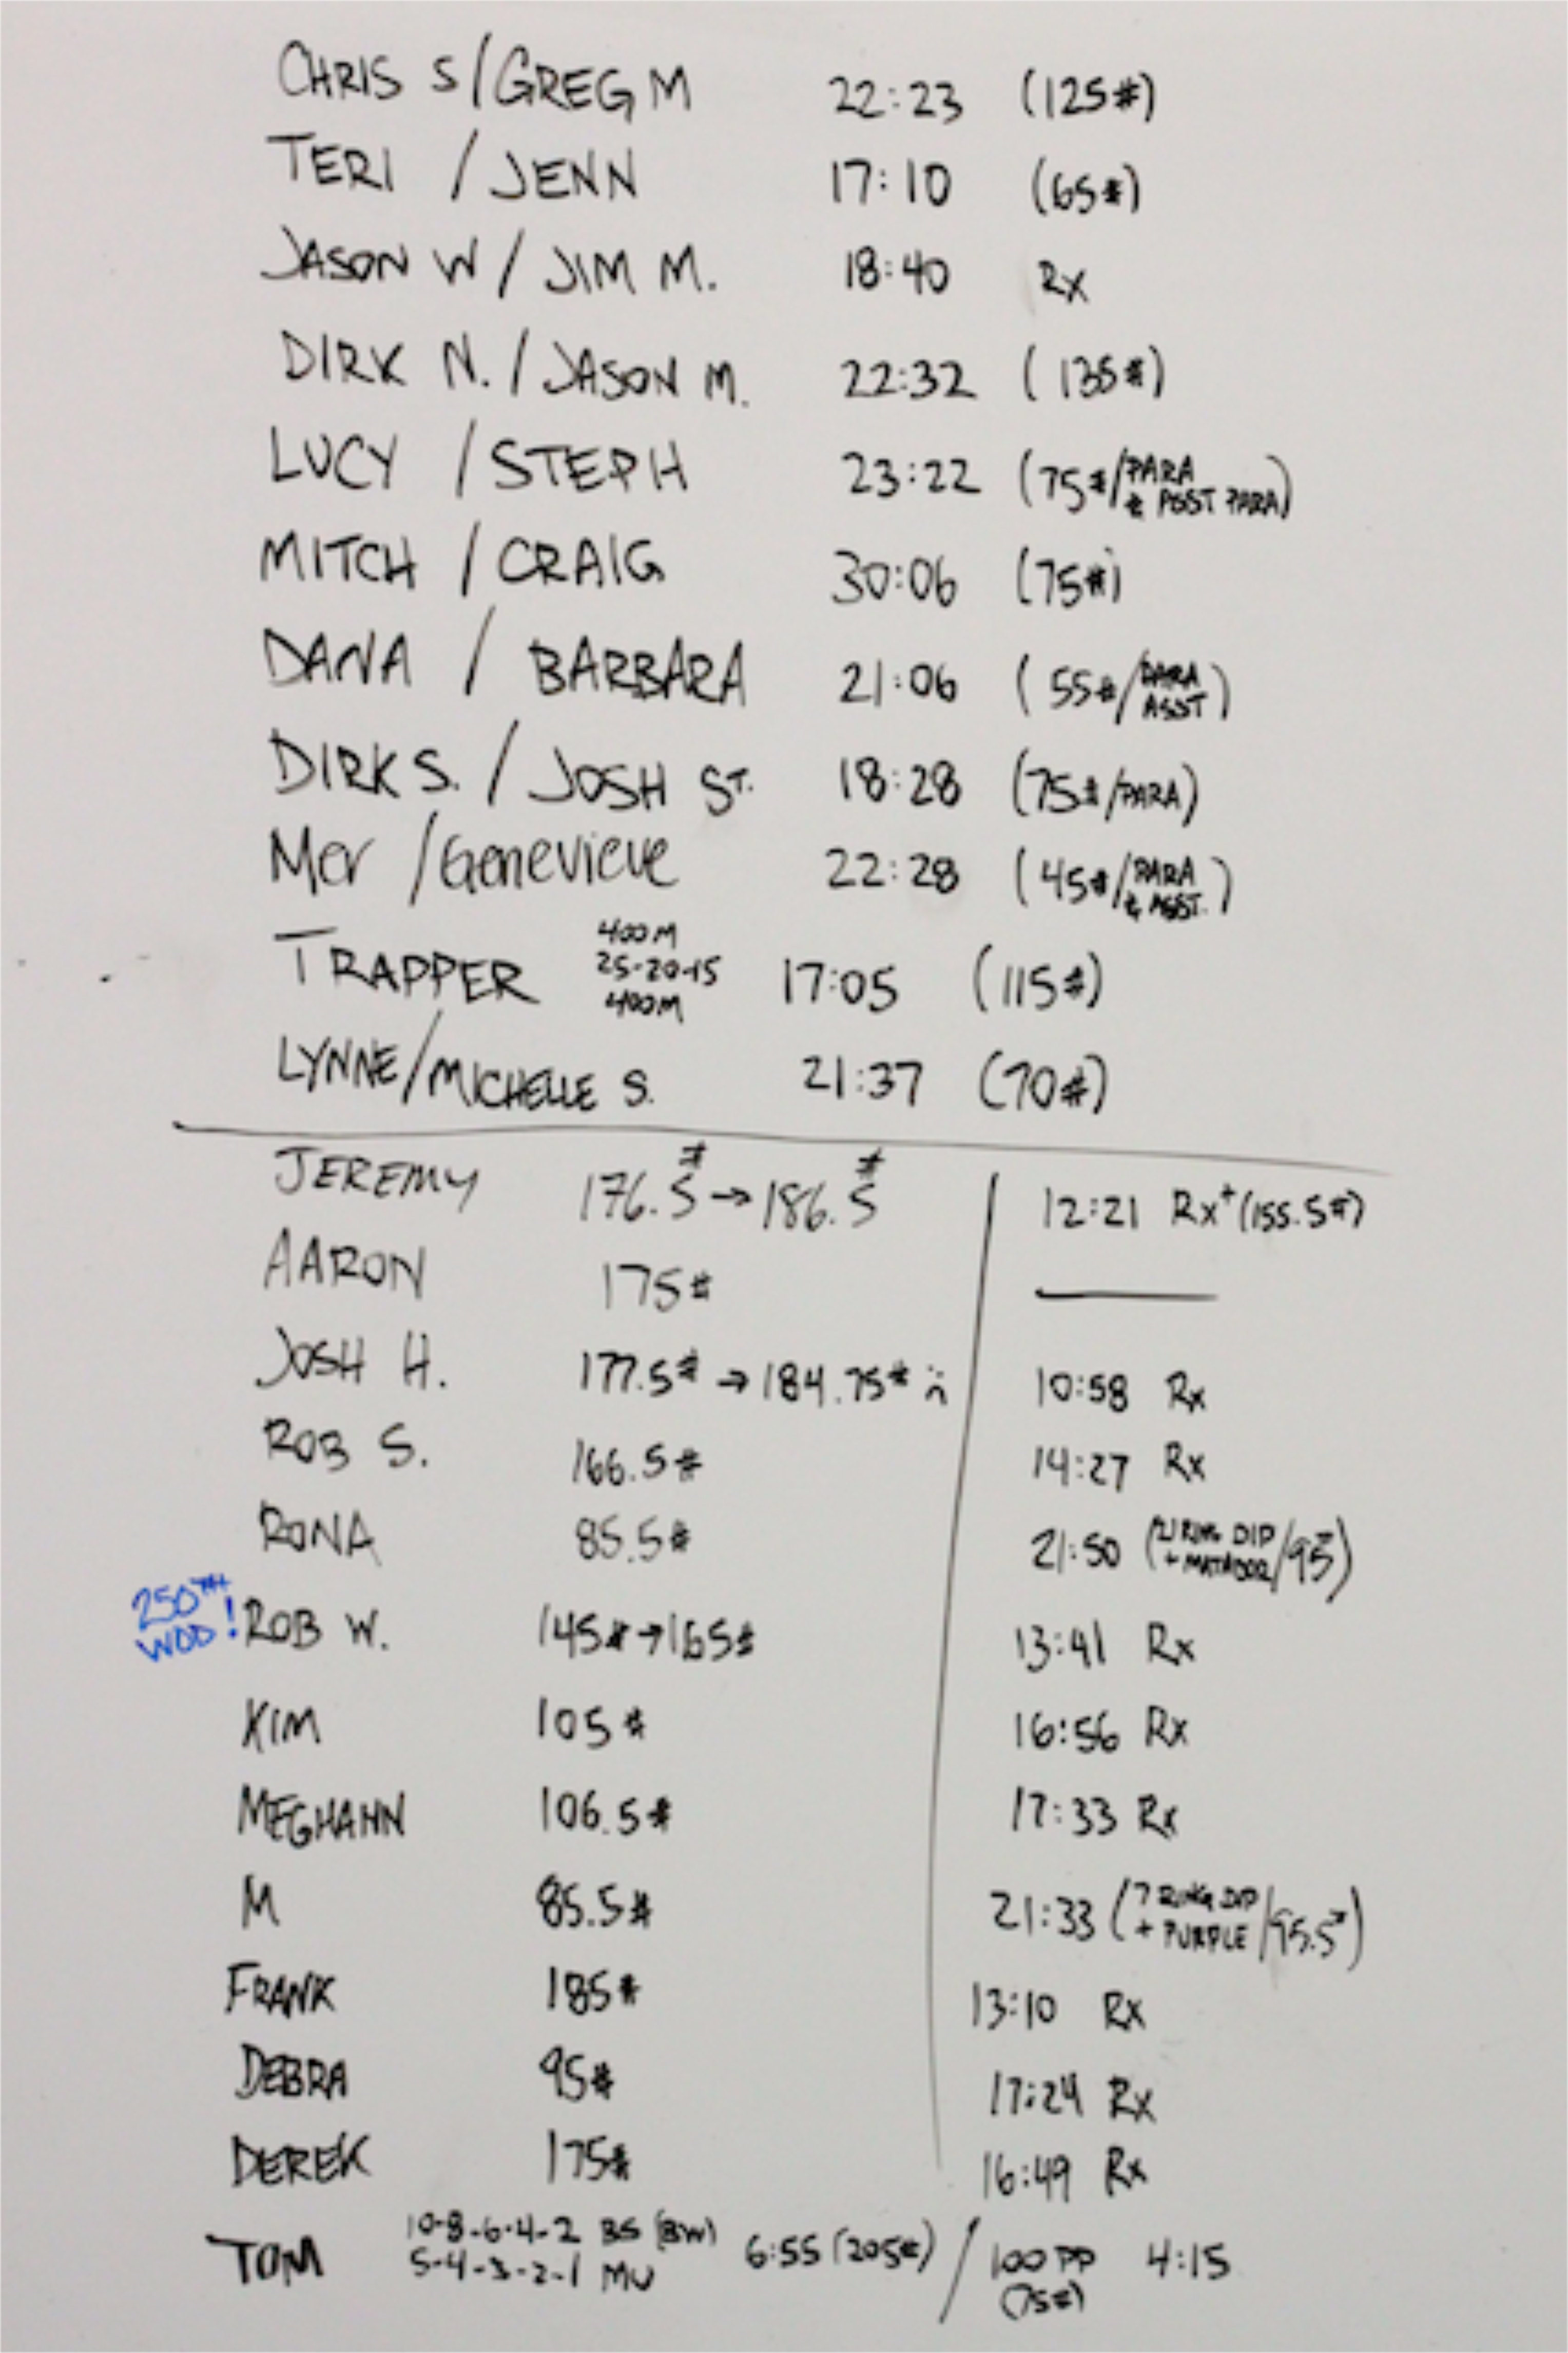 CHRIS S/GREG M 22:23 (125#)
TERI / JENN 17:10 (65#)
JASON W / JIM M. 18:40 Rx
DIRK N. / JASON M. 22:32 (135#)
LUCY / STEPH 23:22 (75#/PARA & ASST PARA)
MITCH / CRAIG 30:06 (75#)
DANA / BARBARA 21:06 (55#/PARA ASST)
DIRK S. / JOSH ST. 18:28 (75#/PARA)
Mer / Genevieve 22:28 (45#/PARA & ASST.)
TRAPPER 400M 25-20-15 400M 17:05 (115#)
LYNNE/MICHELLE S. 21:37 (70#)
JEREMY 176.5# → 186.5# 12:21 Rx+ (155.5#)
AARON 175# —
JOSH H. 177.5# → 184.75# 10:58 Rx
ROB S. 166.5# 14:27 Rx
RONA 85.5# 21:50 (21 RING DIP + MATADOR/95#)
250TH WOD! ROB W. 145# → 165# 13:41 Rx
KIM 105# 16:56 Rx
MEGHANN 106.5# 17:33 Rx
M 85.5# 21:33 (7 RING DIP + PURPLE/95.5#)
FRANK 185# 13:10 Rx
DEBRA 95# 17:24 Rx
DEREK 175# 16:49 Rx
TOM 10-8-6-4-2 BS (BW) 5-4-3-2-1 MU 6:55 (205#) / 100 PP (75#) 4:15